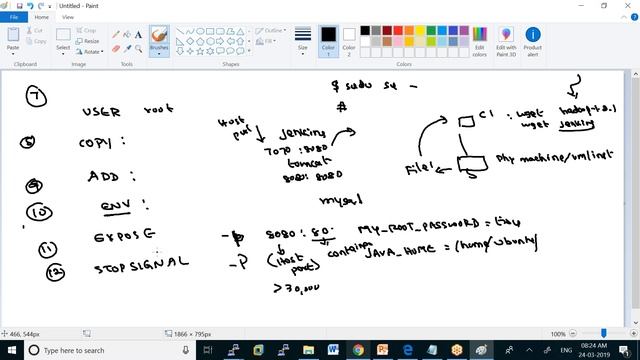 Untitled - Paint
File Home View
Paste
Clipboard
Select
Image
Brushes
Tools
Outline
Fill
Shapes
Size
Color 1
Color 2
Colors
Edit colors
Edit with Paint 3D
Product alert
7
$ sudo su -
#
USER root
Host port
Jenkins
7070 : 8080
tomcat
8081 : 8080
C1 : wget hadoop
wget jenkins
COPY :
File1
Phy machine/vm/inst
9
ADD :
10
ENV :
mysql
11
EXPOSE
-p 8080 : 80
MY_ROOT_PASSWORD =
12
STOPSIGNAL
-P (Host port)
container
JAVA_HOME = /home/ubuntu/
>30,000
466, 544px
1866 × 795px
100%
Type here to search
ENG
08:24 AM
24-03-2019